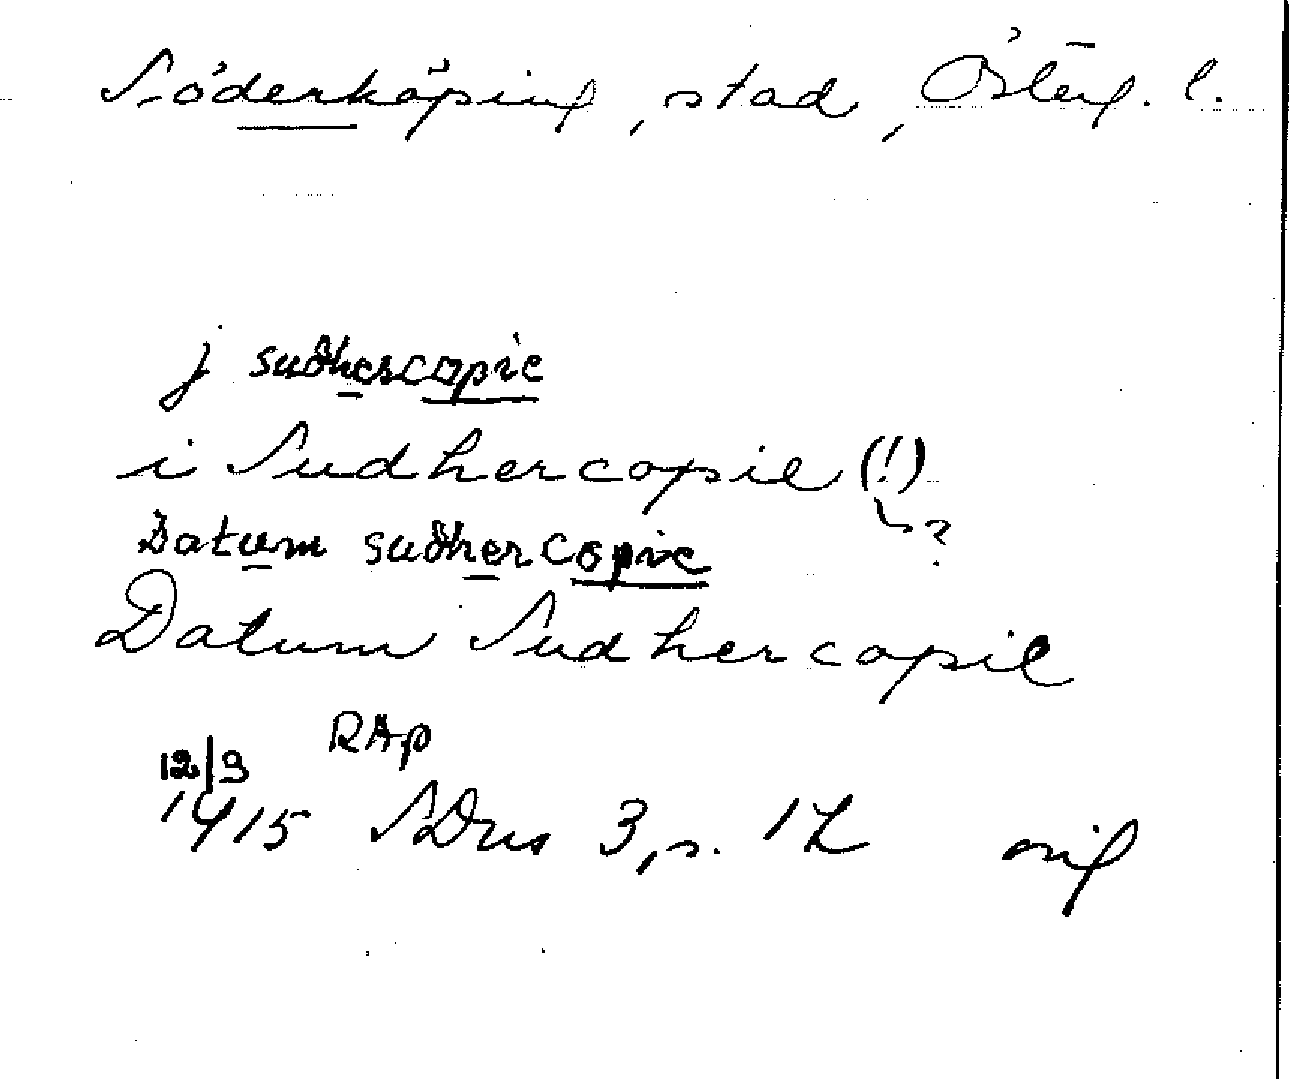 Söderköping, stad, Österg. l.
j sudhercopie
i Sudhercopie (!)
?
Datum sudhercopie
Datum Sudhercopie
RAp
12/9
1415 SDns 3, s. 12 orig